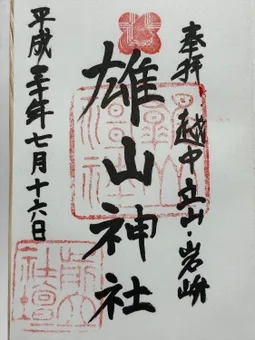 奉拝
越中立山・岩峅
雄山神社
平成三十年七月十六日